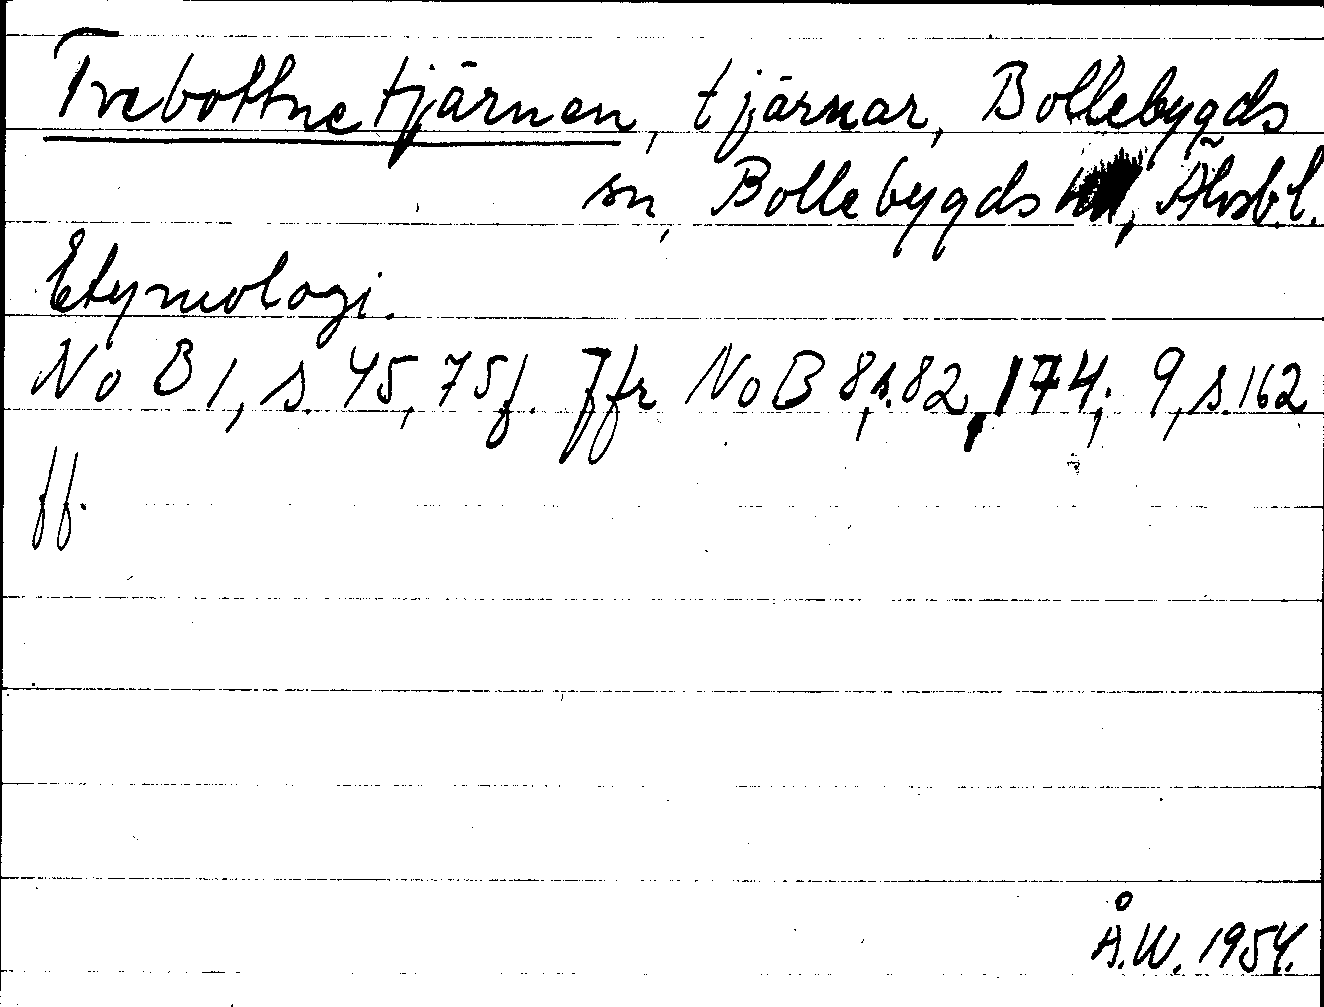 Trebottnetjärnen, tjärnar, Bollebygds
sn, Bollebygds hd, Älvsb.l.
Etymologi.
NoB 1, s. 45, 75f. Jfr NoB 8, s. 82, 174; 9, s. 162
ff.
Å.W. 1954.